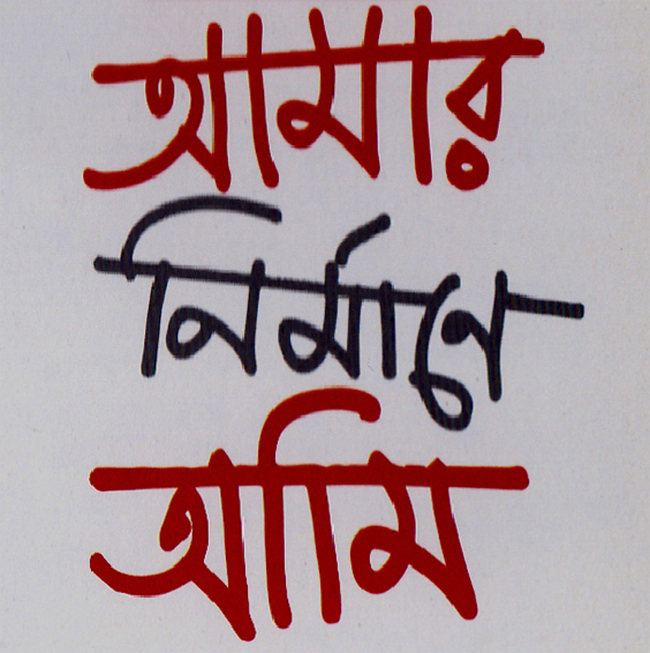 আমার
নির্মানে
আমি